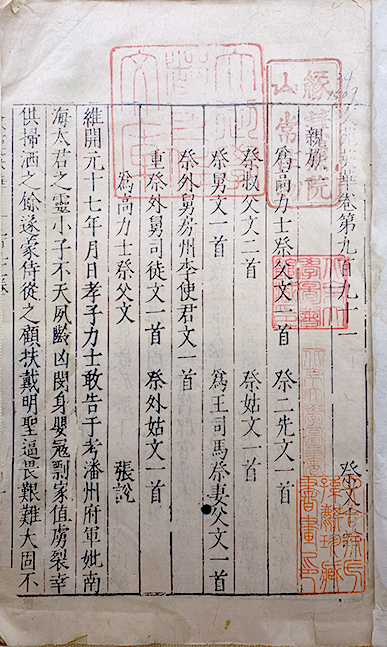 華卷第九百九十一 祭文
親族
爲高力士祭父文一首 祭二先文一首
祭叔父文二首 祭姑文一首
祭男文一首 爲王司馬祭妻父文一首
祭外舅房州李使君文一首
重祭外舅司徒文一首 祭外姑文一首
爲高力士祭父文 張說
維開元十七年月日孝子力士敢告于考潘州府軍妣南
海太君之靈小子不天夙齡凶閔身嬰寇剽家值虜裂幸
供掃洒之餘遂蒙侍從之顧扶戴明聖逼畏艱難大固不